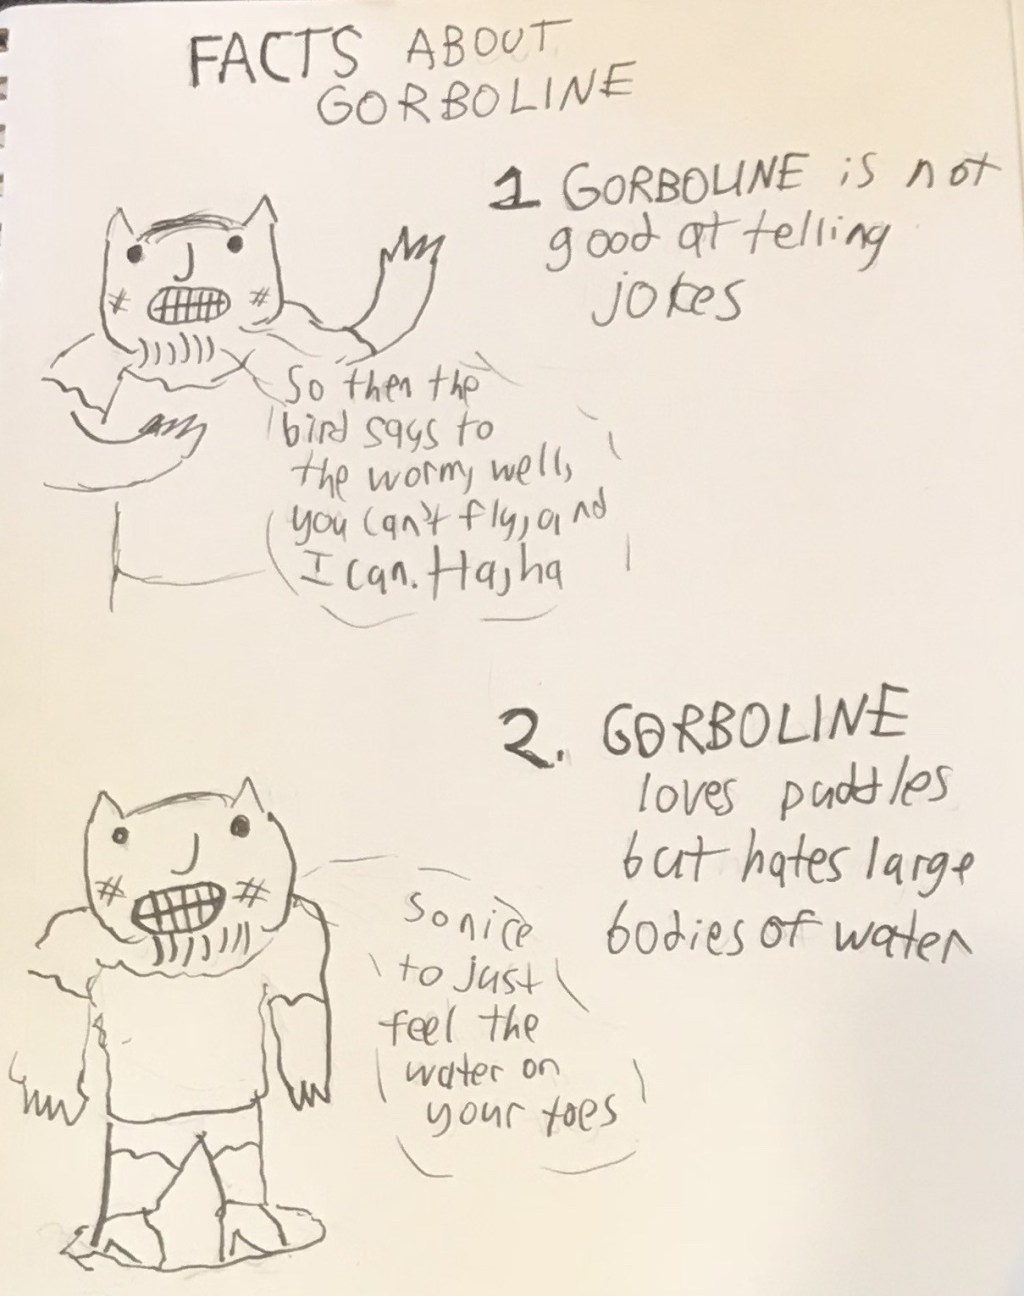 FACTS ABOUT
GORBOLINE
1 GORBOLINE is not
good at telling
jokes
So then the
bird says to
the worm, well,
you can't fly, and
I can. Ha, ha
2. GORBOLINE
loves puddles
but hates large
bodies of water
So nice
to just
feel the
water on
your toes